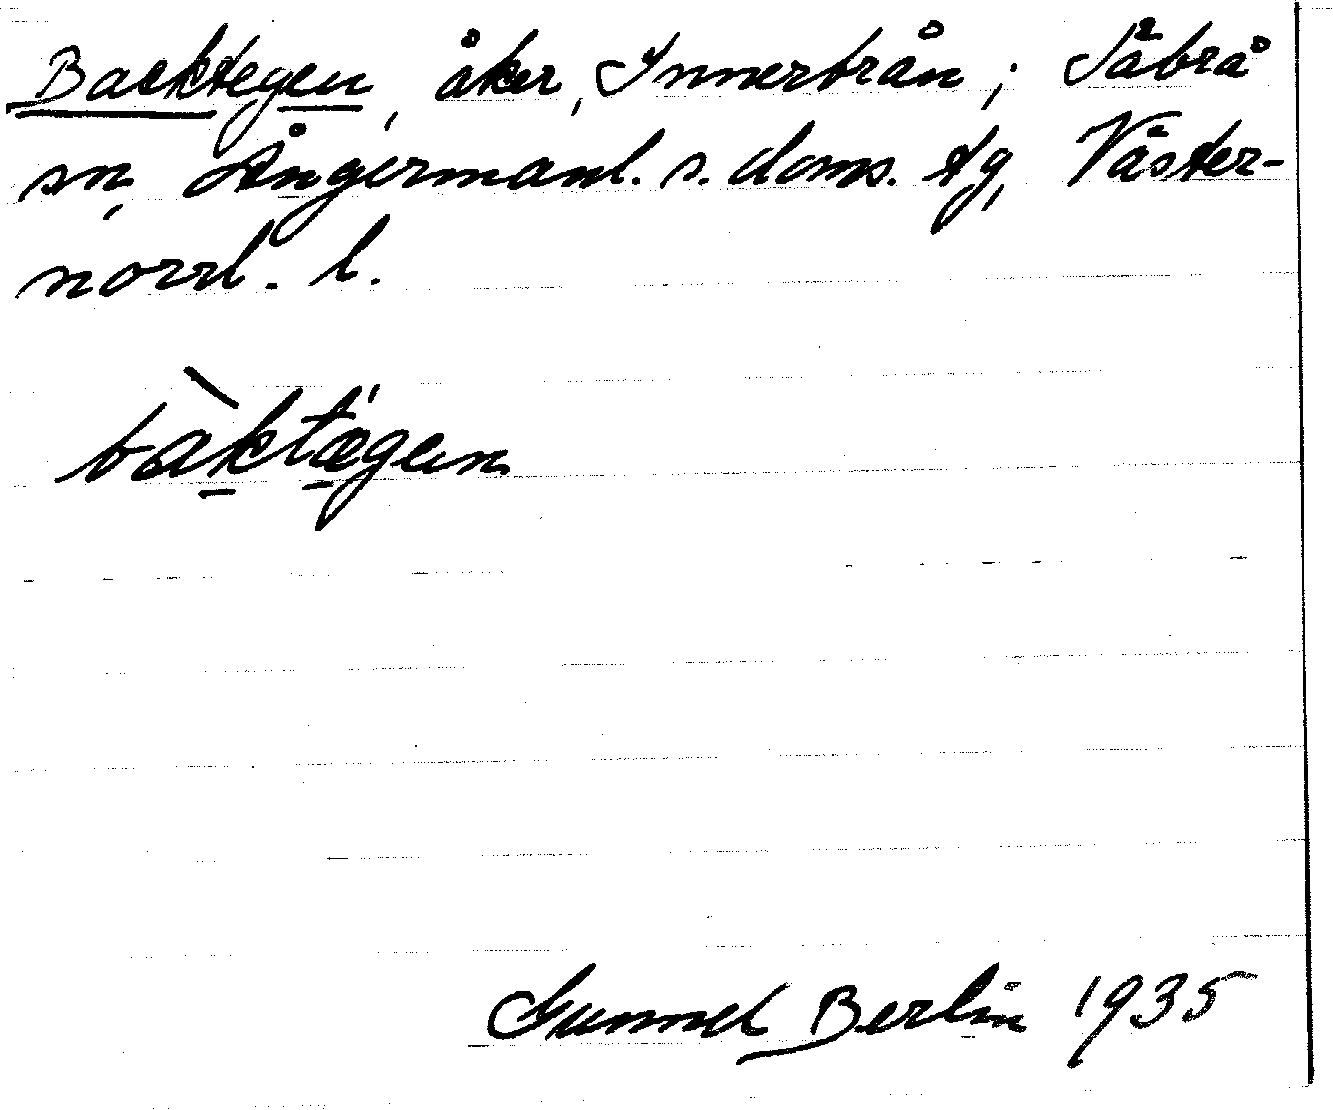 Backtegen, åker, Innerbrån; Säbrå
sn, Ångermanl. s. doms. tg, Väster-
norrl. l.
bàktǽgen
Gunnel Berlin 1935